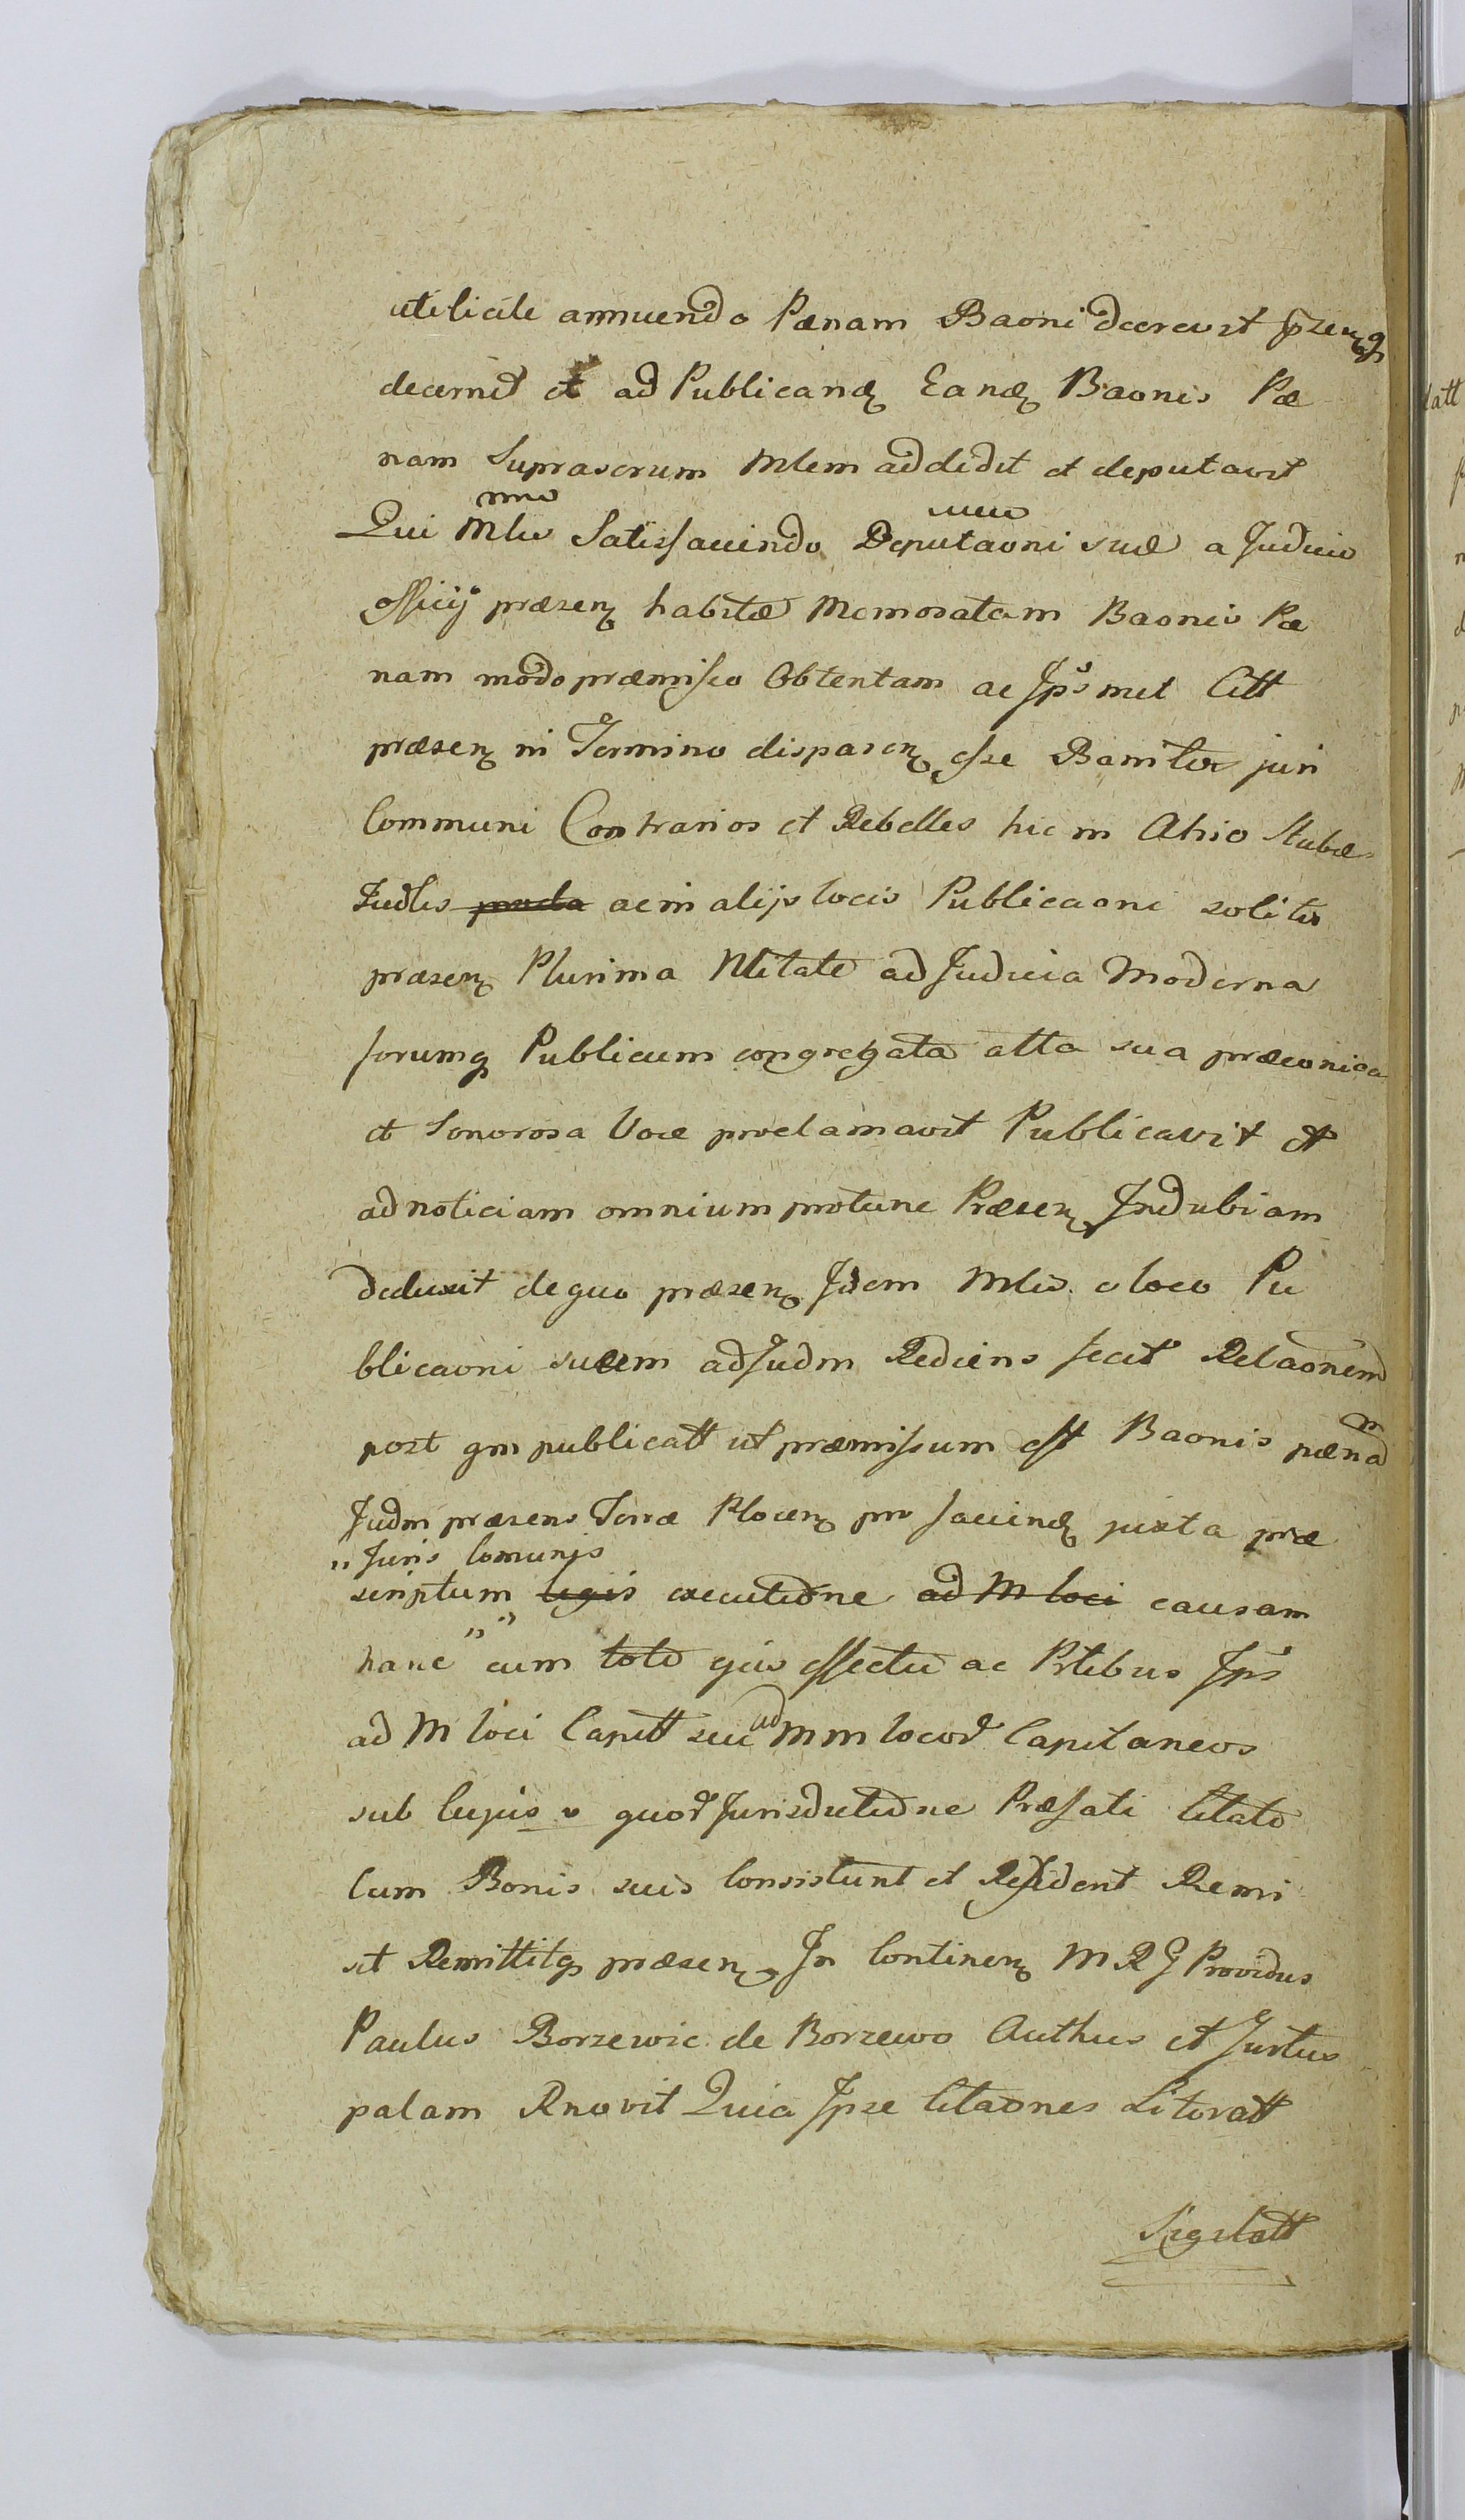 utilitate annuendo Pænam Baoni decrevit præsenq
decernit et ad Publicand Eand Baonis Pæ
nam Suprascrum Mlem addidit et deputavit
Qui Mlis Satisfaciendo Deputaoni suæ a Judicio
officij præsen habitæ Memoratam Baonis Pæ
nam modo præmisso Obtentam ac Jps met Citt
præsen in Termino disparen esse Banitos juri
Communi Contrarios et Rebelles hic in Atrio Stubæ
Judlis ac in alijs locis Publicaoni solitis
præsen Plurima Nlitate ad Judicia Moderna
forumq Publicum congregata alta sua præconica
et Sonorosa Voce proclamavit Publicavit et
ad noticiam omnium protunc Præsen Indubiam
deduxit de quo præsen Idem Mlis e loco Pu
blicaoni suæ ad Judm Rediens fecit Relaonem
post qm publicatt ut præmissum est Baonis pænam
Judm præsens Terræ Plocen pro faciend juxta præ
„Juris Comunis
scriptum legis executione ad M loci causam
hanc „ „ cum toto ejus effectu ac Ptibus Jps
ad M loci Capitt seu ad Mm locor Capitaneos
sub cujus v quor Jurisdictione Præfati Citati
Cum Bonis suis Consistunt et Resident Remi
sit Remittitq præsen. In Continen M R G Providus
Paulus Borzewic de Borzewo Authus et Jurtus
palam Rnovit Quia Ipse Citaones Literatt
Sigilatt